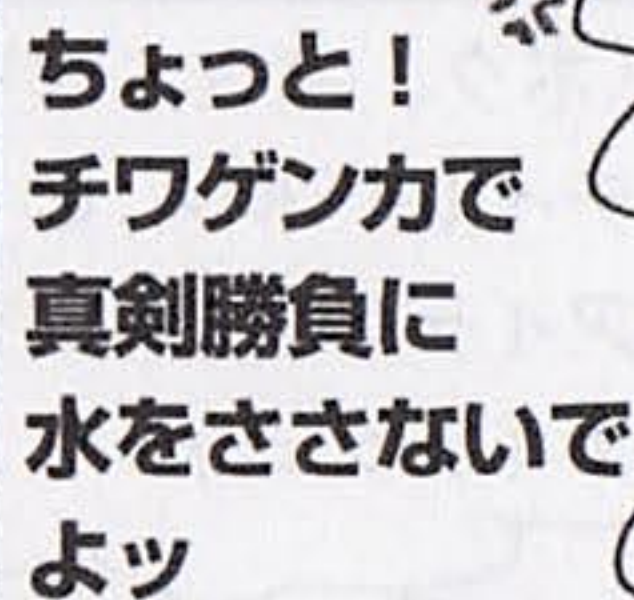 ちょっと！
チワゲンカで
真剣勝負に
水をささないで
よッ